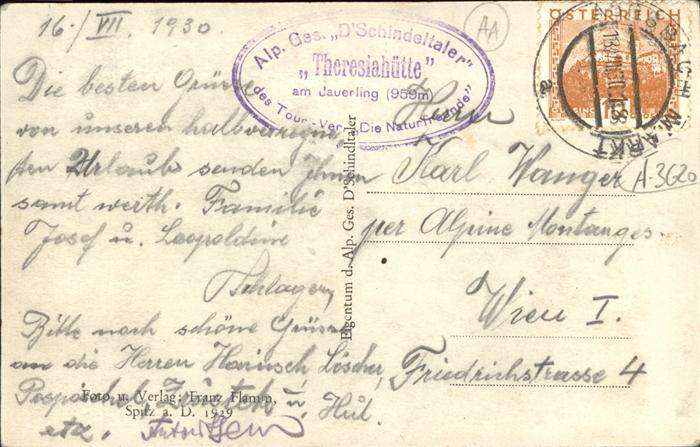 16./VII. 1930
Alp. Ges. „D'Schindeltaler"
„Theresiahütte"
am Jauerling (959m)
des Tour.-Ver. „Die Naturfreunde"
AA
ÖSTERREICH
MARKT
Die besten Grüsse
von unseren halbverregne
ten Urlaub senden ihnen
samt werth. Familie
Josef u. Leopoldine
Bitte noch schöne Grüsse
an die Herren Heinisch Löscher,
Pospischek u. Hul.
etz.
Foto u. Verlag: Franz Flamm,
Spitz a. D. 1929
Eigentum d. Alp. Ges. D'Schindltaler
Herrn
Karl Wanger
A-3620
per Alpine Montanges.
Wien I.
Friedrichstrasse 4